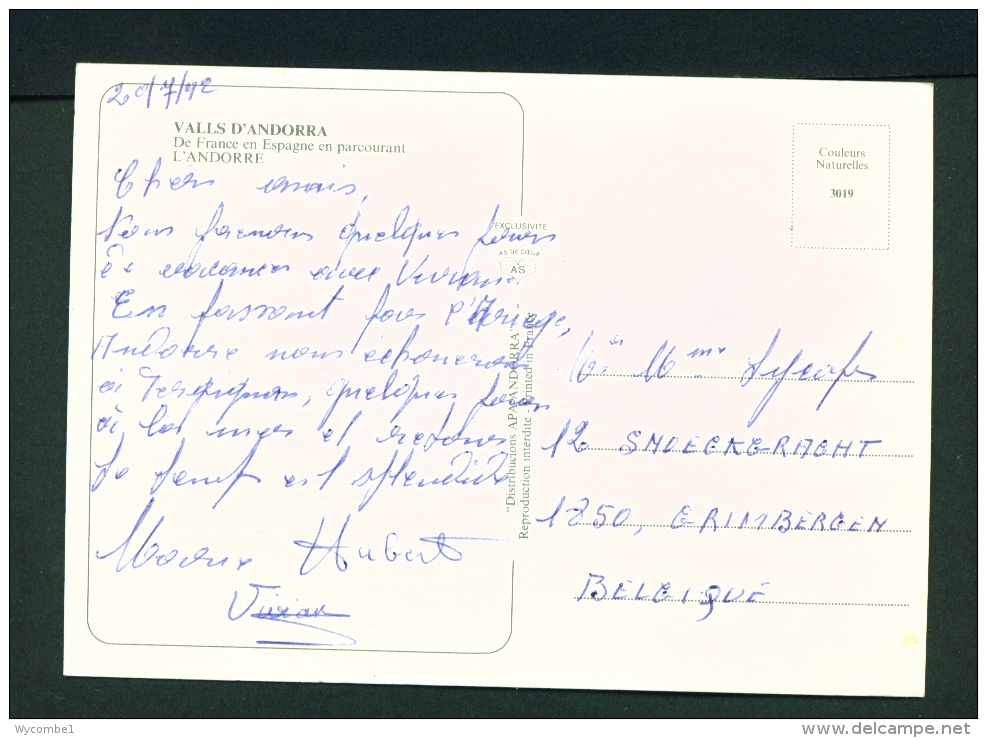 20/7/92
VALLS D'ANDORRA
De France en Espagne en parcourant
L'ANDORRE
Chers amis,
Nous faisons quelques jours
de vacances avec Vivian.
En passant par l'Ariège,
Andorre nous
à Perpignan, quelques jours
à la mer et retour
Le temps est splendide
Hubert
Vivian
EXCLUSIVITE
AS DE CŒUR
AS
"Distribucions APA ANDORRA"
Reproduction interdite - Printed in France
Couleurs
Naturelles
3019
Mr Mme
12 SNOECKGRACHT
1850, GRIMBERGEN
BELGIQUE
Wycombe1
delcampe.net